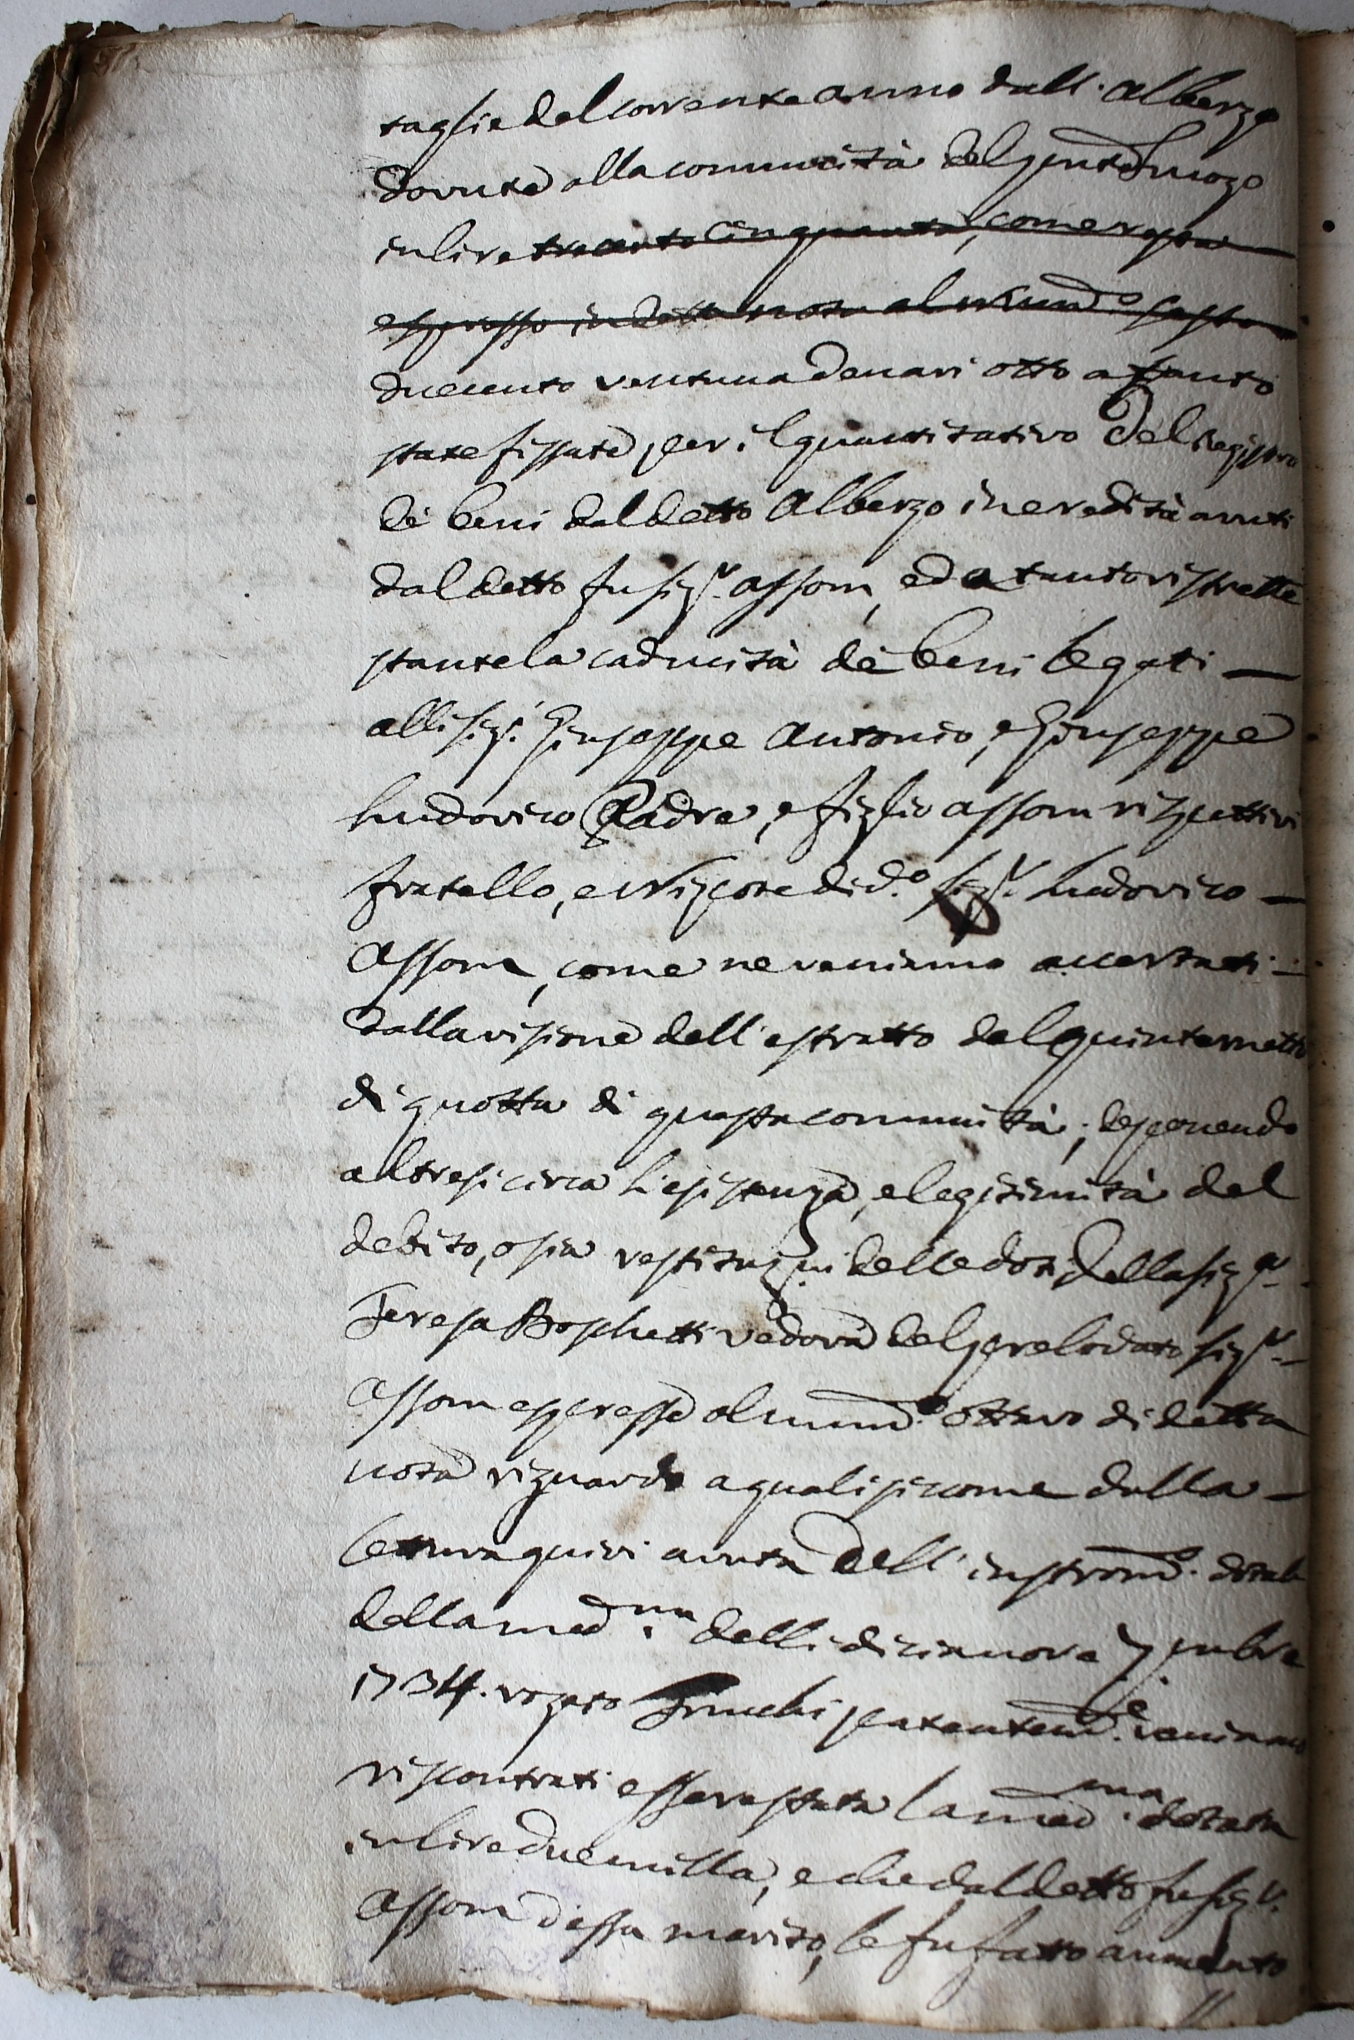 taglie del corrente anno dall'Albergo
dovute alla communità del pnte luogo
in lire trecento cinquanta, come resta
espresso in detta nota al num.o sesto
ducento ventuna denari otto a tanto
state fissate per il quantitativo del Registro
de' beni dal detto Albergo in eredità avuti
dal detto fu sig.r Assom, ed a tanto ristrette
stante la caducità de' beni legati
alli sig.ri Giuseppe Antonio, e Giuseppe
Ludovico Padre, e figlio Assom rispettivi
fratello, e Nipote di d.o sig.r Ludovico
Assom, come ne veniamo accertati
dalla visione dell'estratto del quinternetto
di quotta di questa communità; deponendo
altresi circa l'esistenza, e legitimità del
debito, o sia restituz.ni delle doti della sig.ra
Teresa Boschetti vedova del prelodato sig.r
Assom espresse al num.o ottavo di detta
nota riguardo a quali siccome dalla
lettura quivi avuta dell'instrom.o dotale
della med.ma delli dicianove 7mbre
1734. rogato patentem.e veniamo
riscontrati essere stata la med.ma dotata
in lire due milla, e che dal detto fu sig.r
Assom d'essa marito, le fu fatto aumento